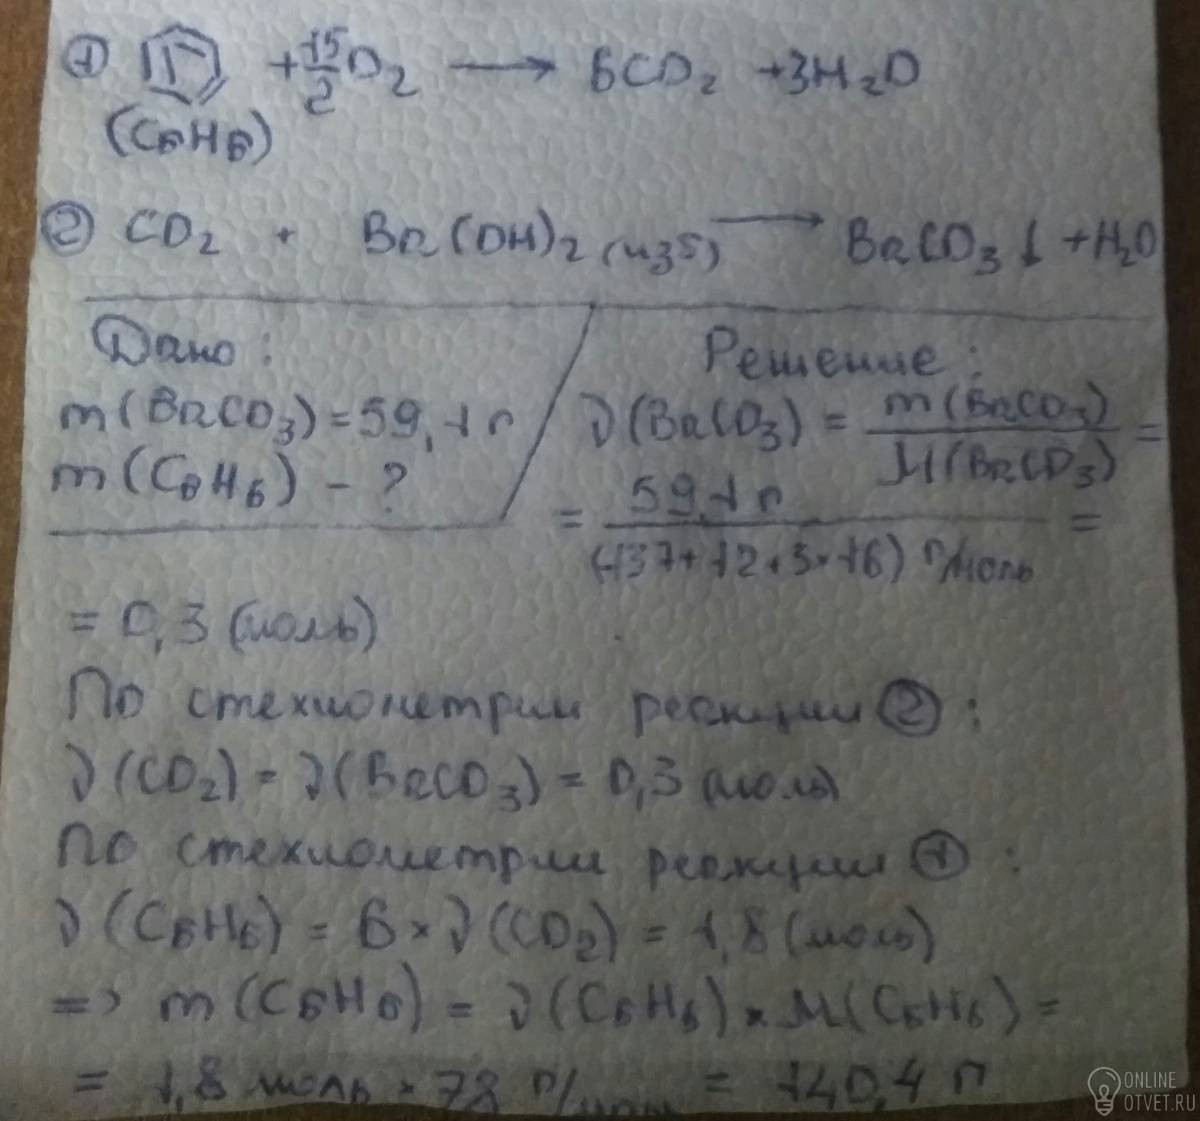 ① + 15/2 O2 → 6CO2 + 3H2O
(C6H6)
② CO2 + Ba(OH)2 (изб) → BaCO3↓ + H2O
Дано:
m(BaCO3) = 59,1 г
m(C6H6) - ?
Решение:
ν(BaCO3) = m(BaCO3)/M(BaCO3) =
= 59,1 г/(137+12+3×16) г/моль =
= 0,3 (моль)
По стехиометрии реакции ②:
ν(CO2) = ν(BaCO3) = 0,3 (моль)
По стехиометрии реакции ①:
ν(C6H6) = 6 × ν(CO2) = 1,8 (моль)
=> m(C6H6) = ν(C6H6) × M(C6H6) =
= 1,8 моль × 78 г/моль = 140,4 г
ONLINE
OTVET.RU